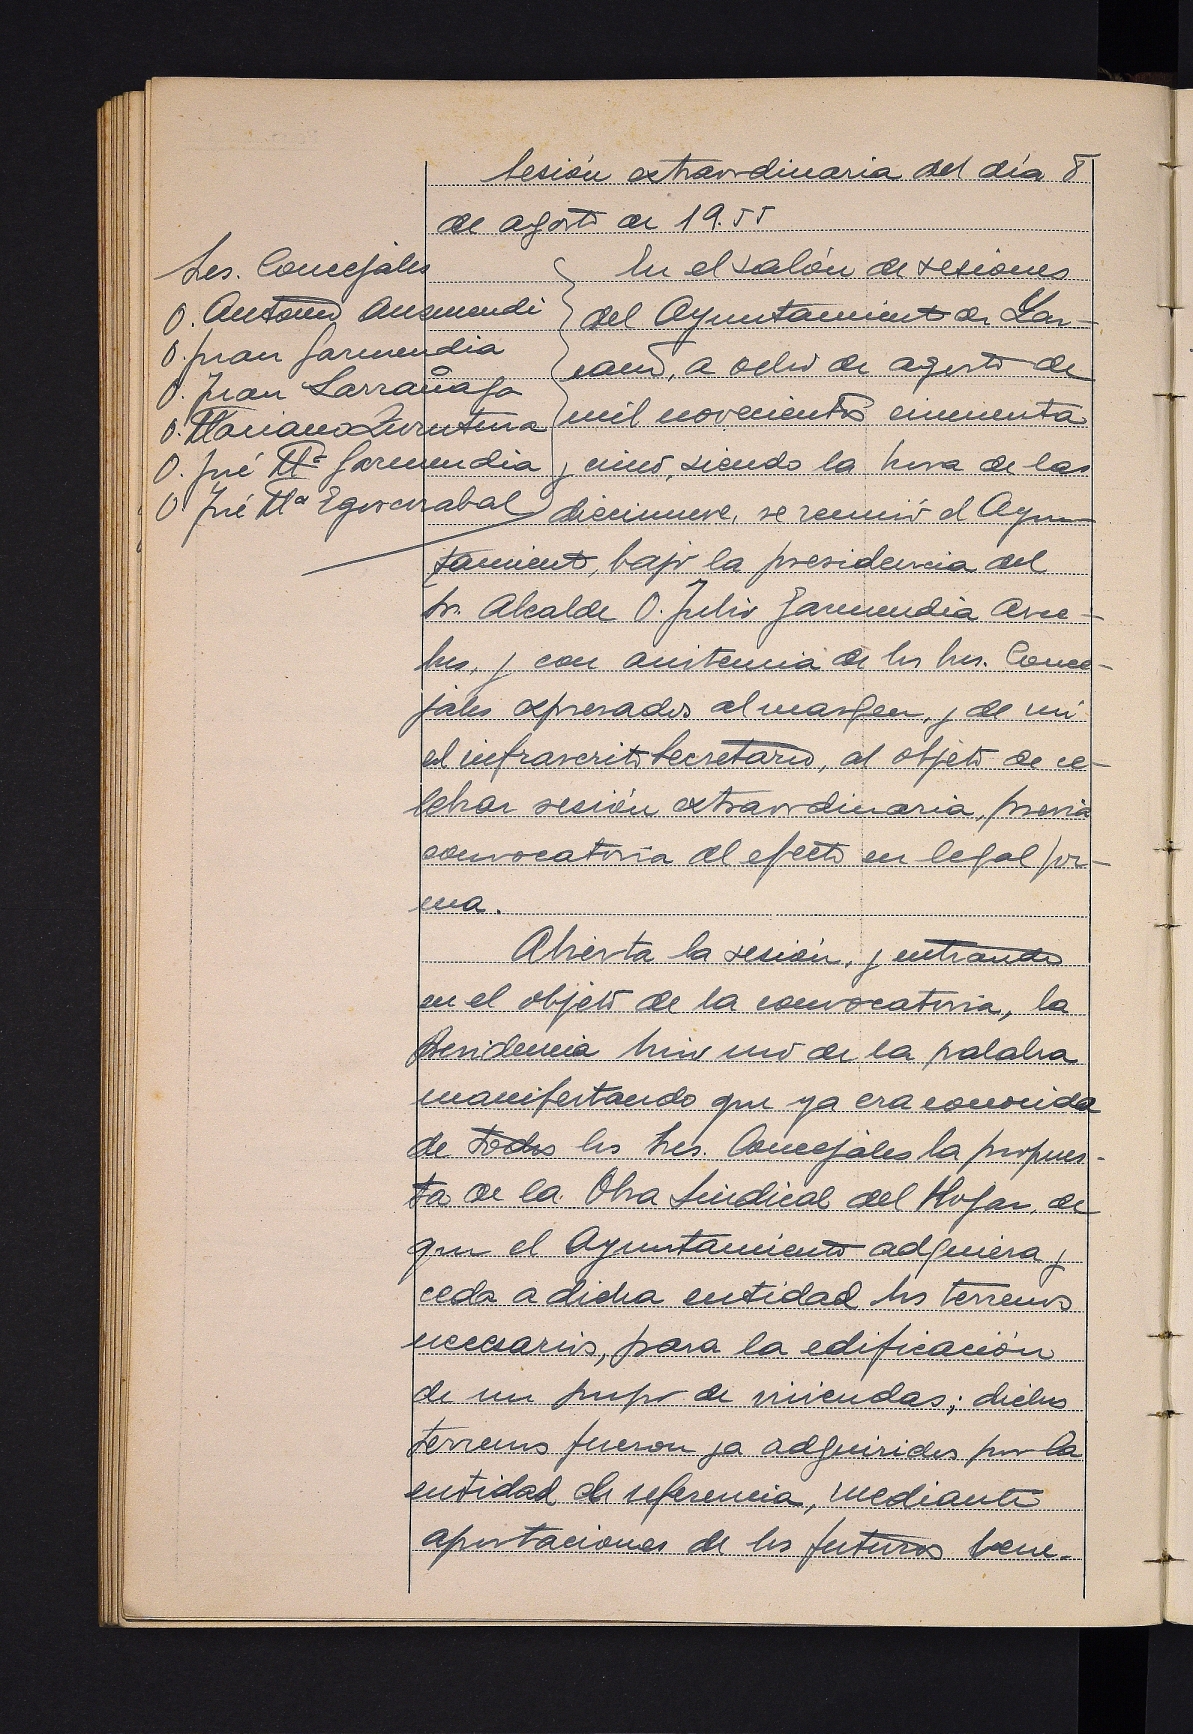 Sesión extraordinaria del día 8
de agosto de 1955
Sres. Concejales
D. Antonio Ausmendi
D. Juan Garmendia
D. Juan Larrañaga
D. Mariano Zurutuza
D. José Mª Garmendia
D. José Mª Egoscozabal
En el salón de sesiones
del Ayuntamiento de Laz-
cano, a ocho de agosto de
mil novecientos cincuenta
y cinco, siendo la hora de las
diecinueve, se reunió el Ayun-
tamiento, bajo la presidencia del
Sr. Alcalde D. Julio Garmendia
los, y con asistencia de los Sres. Conce-
jales expresados al margen, y de mí
el infrascrito Secretario, al objeto de ce-
lebrar sesión extraordinaria, previa
convocatoria al efecto en legal for-
ma.
Abierta la sesión, y entrando
en el objeto de la convocatoria, la
Presidencia hizo uso de la palabra
manifestando que ya era conocida
de todos los Sres. Concejales la propues-
ta de la Obra Sindical del Hogar, de
que el Ayuntamiento adquiera y
ceda a dicha entidad los terrenos
necesarios, para la edificación
de un grupo de viviendas; dichos
terrenos fueron ya adquiridos por la
entidad de referencia, mediante
aportaciones de los futuros bene-